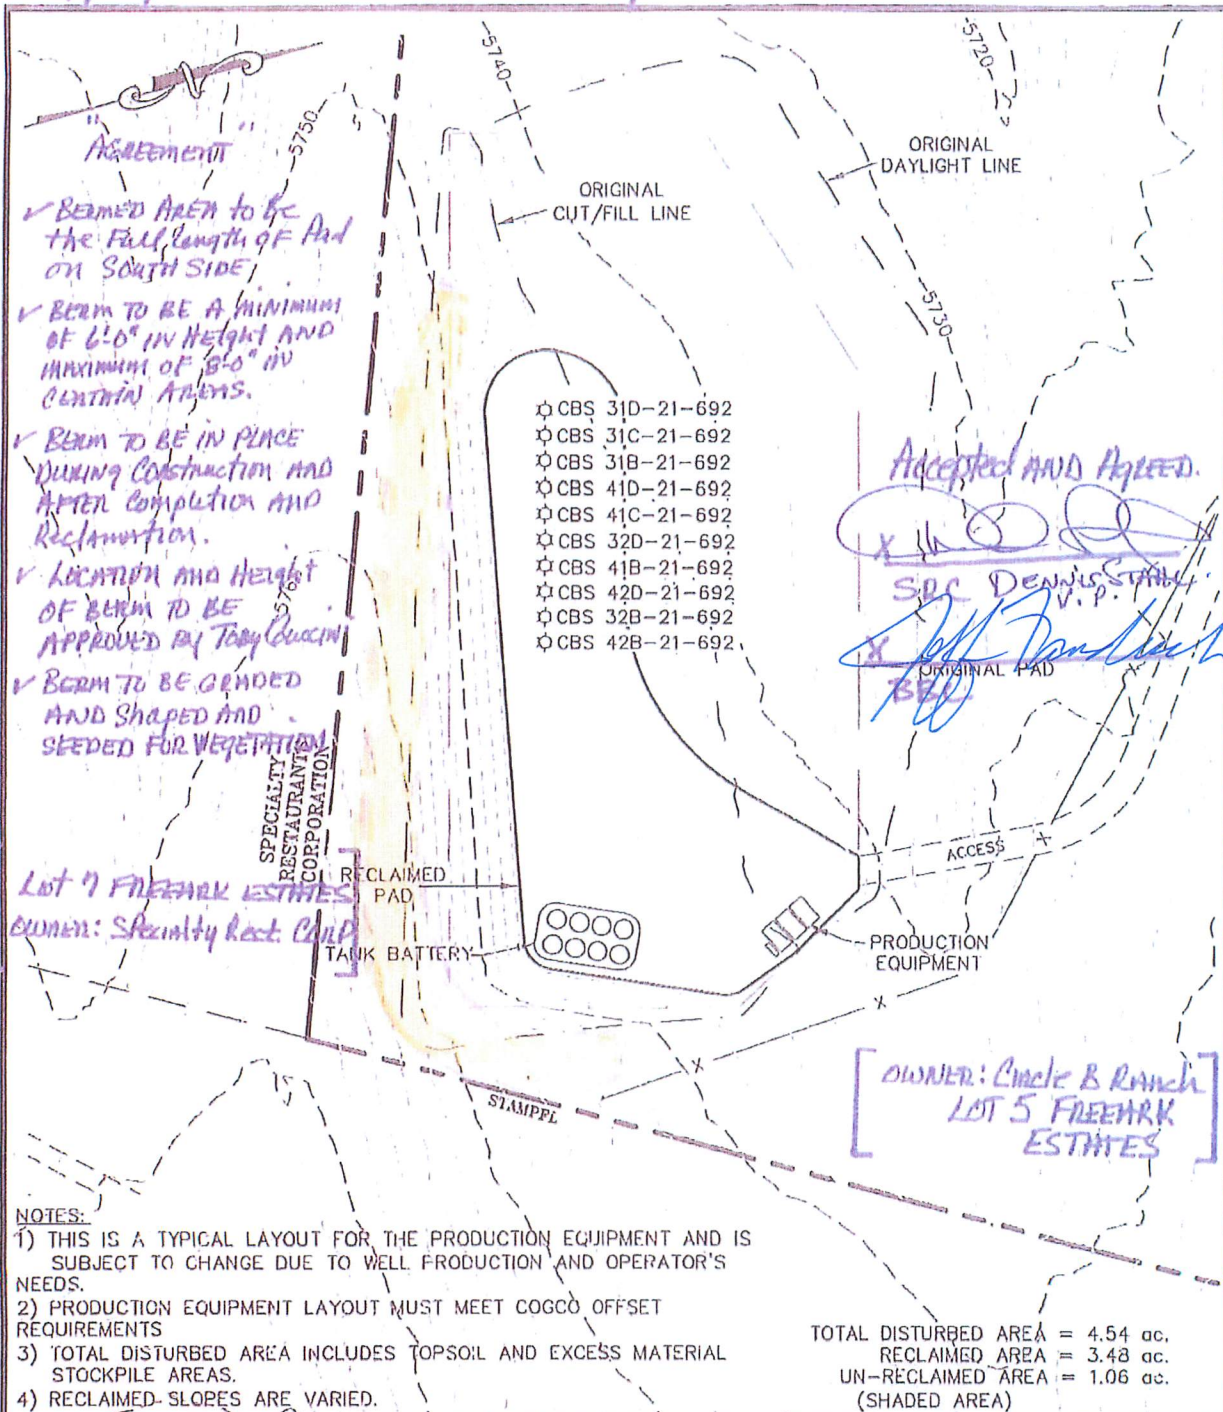 N
"AGREEMENT"
✓ BERMED AREA to be
the Full length of Pad
on SOUTH SIDE
✓ BERM TO BE A MINIMUM
OF 6'-0" IN HEIGHT AND
MAXIMUM OF 8'-0" IN
CERTAIN AREAS.
✓ BERM TO BE IN PLACE
DURING CONSTRUCTION AND
AFTER COMPLETION AND
Reclamation.
✓ LOCATION AND HEIGHT
OF BERM TO BE
APPROVED BY Toby
✓ BERM TO BE GRADED
AND SHAPED AND
SEEDED FOR VEGETATION
5750
5740
5720
5730
5760
ORIGINAL
CUT/FILL LINE
ORIGINAL
DAYLIGHT LINE
CBS 31D-21-692
CBS 31C-21-692
CBS 31B-21-692
CBS 41D-21-692
CBS 41C-21-692
CBS 32D-21-692
CBS 41B-21-692
CBS 42D-21-692
CBS 32B-21-692
CBS 42B-21-692
Accepted AND AGREED.
X
SRC DENNIS STAHL
V.P.
X
ORIGINAL PAD
BBC
SPECIALTY
RESTAURANTS
CORPORATION
LOT 7 FREEHARK ESTATES
OWNER: Specialty Rest. CORP
RECLAIMED
PAD
TANK BATTERY
ACCESS
PRODUCTION
EQUIPMENT
STAMPFL
OWNER: Circle B Ranch
LOT 5 FREEHARK
ESTATES
NOTES:
1) THIS IS A TYPICAL LAYOUT FOR THE PRODUCTION EQUIPMENT AND IS
SUBJECT TO CHANGE DUE TO WELL PRODUCTION AND OPERATOR'S
NEEDS.
2) PRODUCTION EQUIPMENT LAYOUT MUST MEET COGCO OFFSET
REQUIREMENTS
3) TOTAL DISTURBED AREA INCLUDES TOPSOIL AND EXCESS MATERIAL
STOCKPILE AREAS.
4) RECLAIMED SLOPES ARE VARIED.
TOTAL DISTURBED AREA = 4.54 ac.
RECLAIMED AREA = 3.48 ac.
UN-RECLAIMED AREA = 1.06 ac.
(SHADED AREA)